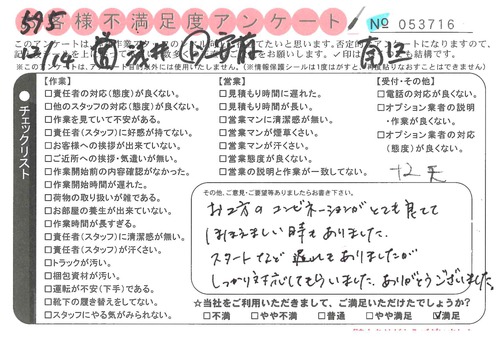 お客様不満足度アンケート
No 053716
595
12/14
南江
このアンケートは
※このアンケートは、アンケート目的以外には使用いたしません。(※情報保護シールは1度はがすと、再度貼りなおすことはできません)
チェックリスト
【作業】
□責任者の対応(態度)が良くない。
□他のスタッフの対応(態度)が良くない。
□作業を見ていて不安がある。
□責任者(スタッフ)に好感が持てない。
□お客様への挨拶が出来ていない。
□ご近所への挨拶・気遣いが無い。
□作業開始前の内容確認がなかった。
□作業開始時間が遅れた。
□荷物の取り扱いが雑である。
□お部屋の養生が出来ていない。
□作業時間が長すぎる。
□責任者(スタッフ)に清潔感が無い。
□責任者(スタッフ)が汗くさい。
□トラックが汚い。
□梱包資材が汚い。
□運転が不安(下手)である。
□靴下の履き替えをしてない。
□スタッフにやる気がみられない。
【営業】
□見積もり時間に遅れた。
□見積もり時間が長い。
□営業マンに清潔感が無い。
□営業マンが煙草くさい。
□営業マンが汗くさい。
□営業態度が良くない。
□営業の説明と作業が一致してない。
【受付・その他】
□電話の対応が良くない。
□オプション業者の説明・作業が良くない。
□オプション業者の対応(態度)が良くない。
その他、ご意見・ご要望等ありましたらお書き下さい。
お2方のコンビネーションがとても見てて
ほほえましい時もありました。
スタートなど遅しもありましたが
しっかり対応してもらいました。ありがとうございました。
☆当社をご利用いただきまして、ご満足いただけたでしょうか?
□不満 □やや不満 □普通 □やや満足 ☑満足